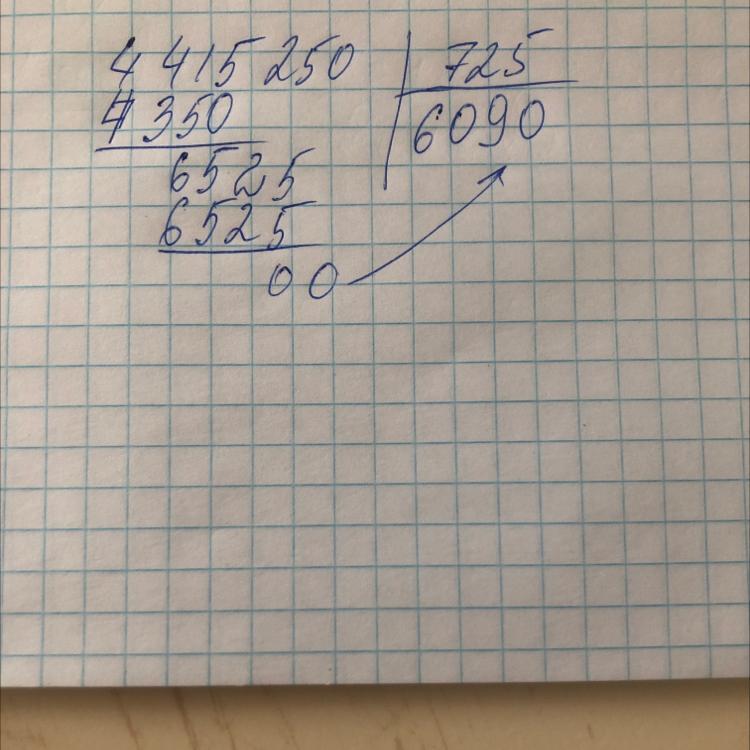 4 415 250 | 725
4350 | 6090
6525
6525
00